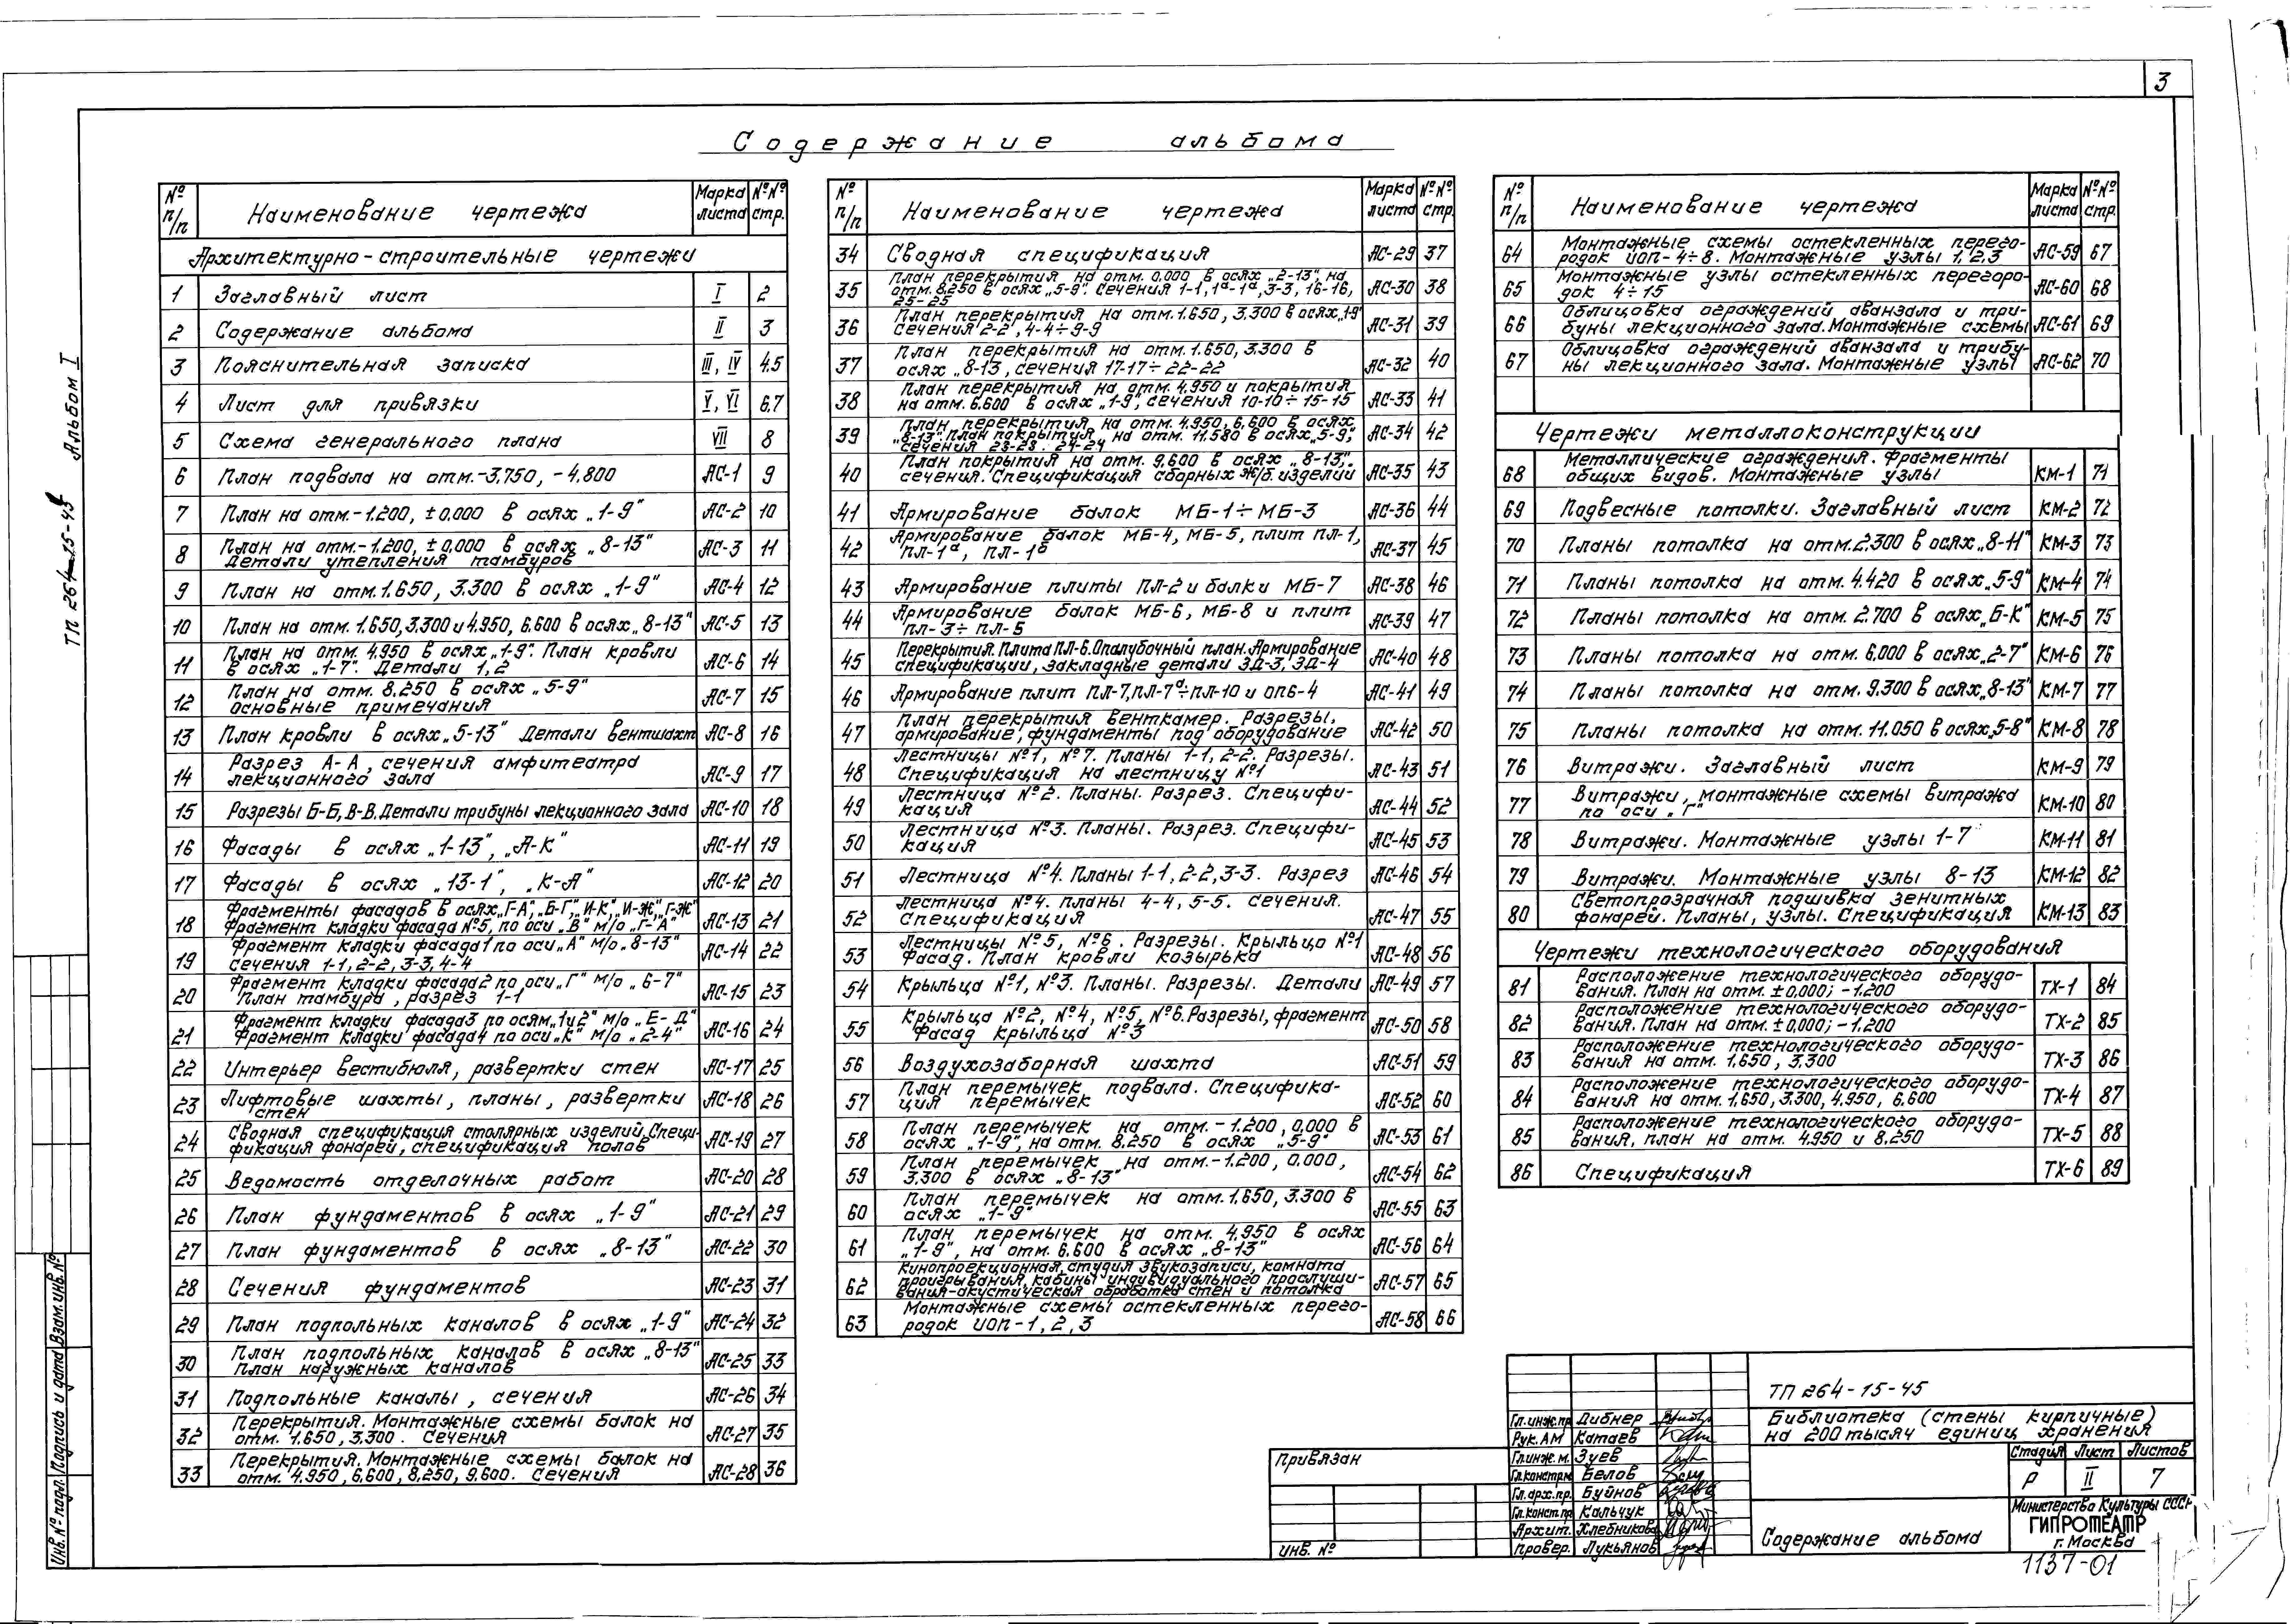 3
Содержание альбома
№ п/п Наименование чертежа Марка листа №№ стр.
Архитектурно-строительные чертежи
1 Заглавный лист I 2
2 Содержание альбома II 3
3 Пояснительная записка III, IV 4,5
4 Лист для привязки V, VI 6,7
5 Схема генерального плана VII 8
6 План подвала на отм.-3,750, -4,800 АС-1 9
7 План на отм.-1.200, ±0,000 в осях „1-9" АС-2 10
8 План на отм.-1.200, ±0,000 в осях „8-13"
Детали утепления тамбуров АС-3 11
9 План на отм.1.650, 3.300 в осях „1-9" АС-4 12
10 План на отм. 1.650,3.300 и 4.950, 6.600 в осях „8-13" АС-5 13
11 План на отм. 4.950 в осях „1-9". План кровли
в осях „1-7". Детали 1,2 АС-6 14
12 План на отм. 8.250 в осях „5-9"
основные примечания АС-7 15
13 План кровли в осях „5-13" Детали вентшахт АС-8 16
14 Разрез А-А, сечения амфитеатра
лекционного зала АС-9 17
15 Разрезы Б-Б, В-В. Детали трибуны лекционного зала АС-10 18
16 Фасады в осях „1-13", „А-К" АС-11 19
17 Фасады в осях „13-1", „К-А" АС-12 20
18 Фрагменты фасадов в осях „Г-А", „Б-Г", „И-К", „И-Ж", „Г-Ж"
Фрагмент кладки фасада №5, по оси „В" м/о „Г-А" АС-13 21
19 Фрагмент кладки фасада 1 по оси „А" м/о „8-13"
сечения 1-1, 2-2, 3-3, 4-4 АС-14 22
20 Фрагмент кладки фасада 2 по оси „Г" м/о „6-7"
План тамбура, разрез 1-1 АС-15 23
21 Фрагмент кладки фасада 3 по осям „1 и 2" м/о „Е-Д"
Фрагмент кладки фасада 4 по оси „К" м/о „2-4" АС-16 24
22 Интерьер вестибюля, развертки стен АС-17 25
23 Лифтовые шахты, планы, развертки
стен АС-18 26
24 Сводная спецификация столярных изделий, Специ-
фикация фонарей, спецификация полов АС-19 27
25 Ведомость отделочных работ АС-20 28
26 План фундаментов в осях „1-9" АС-21 29
27 План фундаментов в осях „8-13" АС-22 30
28 Сечения фундаментов АС-23 31
29 План подпольных каналов в осях „1-9" АС-24 32
30 План подпольных каналов в осях „8-13"
План наружных каналов АС-25 33
31 Подпольные каналы, сечения АС-26 34
32 Перекрытия. Монтажные схемы балок на
отм. 1.650, 3.300. Сечения АС-27 35
33 Перекрытия. Монтажные схемы балок на
отм. 4.950, 6.600, 8.250, 9.600. Сечения АС-28 36
№ п/п Наименование чертежа Марка листа №№ стр.
34 Сводная спецификация АС-29 37
35 План перекрытия на отм. 0.000 в осях „2-13", на
отм. 8.250 в осях „5-9". Сечения 1-1, 1ª-1ª, 3-3, 16-16,
25-25 АС-30 38
36 План перекрытия на отм.1.650, 3.300 в осях „1-9"
сечения 2-2, 4-4÷9-9 АС-31 39
37 План перекрытия на отм. 1.650, 3.300 в
осях „8-13, сечения 17-17÷22-22 АС-32 40
38 План перекрытия на отм. 4.950 и покрытия
на отм. 6.600 в осях „1-9", сечения 10-10÷15-15 АС-33 41
39 План перекрытия на отм. 4.950, 6.600 в осях
„8-13". План покрытия на отм. 11.580 в осях „5-9",
сечения 23-23. 24-24 АС-34 42
40 План покрытия на отм. 9.600 в осях „8-13",
сечения. Спецификация сборных ж/б. изделий АС-35 43
41 Армирование балок МБ-1÷МБ-3 АС-36 44
42 Армирование балок МБ-4, МБ-5, плит ПЛ-1,
ПЛ-1ª, ПЛ-1ᵟ АС-37 45
43 Армирование плиты ПЛ-2 и балки МБ-7 АС-38 46
44 Армирование балок МБ-6, МБ-8 и плит
ПЛ-3÷ПЛ-5 АС-39 47
45 Перекрытия. Плита ПЛ-6. Опалубочный план. Армирование
спецификации, закладные детали ЗД-3, ЗД-4 АС-40 48
46 Армирование плит ПЛ-7, ПЛ-7ª÷ПЛ-10 и ОПБ-4 АС-41 49
47 План перекрытия венткамер. Разрезы,
армирование, фундаменты под оборудование АС-42 50
48 Лестницы №1, №7. Планы 1-1, 2-2. Разрезы.
Спецификация на лестницу №1 АС-43 51
49 Лестница №2. Планы. Разрез. Специфи-
кация АС-44 52
50 Лестница №3. Планы. Разрез. Специфи-
кация АС-45 53
51 Лестница №4. Планы 1-1, 2-2, 3-3. Разрез АС-46 54
52 Лестница №4. планы 4-4, 5-5. Сечения.
Спецификация АС-47 55
53 Лестницы №5, №6. Разрезы. Крыльцо №1
Фасад. План кровли козырька АС-48 56
54 Крыльца №1, №3. Планы. Разрезы. Детали АС-49 57
55 Крыльца №2, №4, №5, №6. Разрезы, фрагмент
Фасад крыльца №3 АС-50 58
56 Воздухозаборная шахта АС-51 59
57 План перемычек подвала. Специфика-
ция перемычек АС-52 60
58 План перемычек на отм. -1.200, 0.000 в
осях „1-9", на отм. 8.250 в осях „5-9" АС-53 61
59 План перемычек на отм.-1.200, 0.000,
3.300 в осях „8-13" АС-54 62
60 План перемычек на отм. 1.650, 3.300 в
осях „1-9" АС-55 63
61 План перемычек на отм. 4.950 в осях
„1-9", на отм. 6.600 в осях „8-13" АС-56 64
62 Кинопроекционная, студия звукозаписи, комната
проигрывания, кабины индивидуального прослуши-
вания-акустическая обработка стен и потолка АС-57 65
63 Монтажные схемы остекленных перего-
родок ИОП-1, 2, 3 АС-58 66
№ п/п Наименование чертежа Марка листа №№ стр.
64 Монтажные схемы остекленных перего-
родок ИОП-4÷8. Монтажные узлы 1, 2,3 АС-59 67
65 Монтажные узлы остекленных перегоро-
док 4÷15 АС-60 68
66 Облицовка ограждений аванзала и три-
буны лекционного зала. Монтажные схемы АС-61 69
67 Облицовка ограждений аванзала и трибу-
ны лекционного зала. Монтажные узлы АС-62 70
Чертежи металлоконструкции
68 Металлические ограждения. Фрагменты
общих видов. Монтажные узлы КМ-1 71
69 Подвесные потолки. Заглавный лист КМ-2 72
70 Планы потолка на отм.2.300 в осях „8-11" КМ-3 73
71 Планы потолка на отм. 4.420 в осях „5-9" КМ-4 74
72 Планы потолка на отм. 2.700 в осях „Б-К" КМ-5 75
73 Планы потолка на отм. 6.000 в осях „2-7" КМ-6 76
74 Планы потолка на отм. 9.300 в осях „8-13" КМ-7 77
75 Планы потолка на отм. 11.050 в осях „5-8" КМ-8 78
76 Витражи. Заглавный лист КМ-9 79
77 Витражи, монтажные схемы витража
по оси „Г" КМ-10 80
78 Витражи. Монтажные узлы 1-7 КМ-11 81
79 Витражи. Монтажные узлы 8-13 КМ-12 82
80 Светопрозрачная подшивка зенитных
фонарей. Планы, узлы. Спецификация КМ-13 83
Чертежи технологического оборудования
81 Расположение технологического оборудо-
вания. План на отм. ±0,000; -1.200 ТХ-1 84
82 Расположение технологического оборудо-
вания. План на отм. ±0,000; -1.200 ТХ-2 85
83 Расположение технологического оборудо-
вания на отм. 1.650, 3.300 ТХ-3 86
84 Расположение технологического оборудо-
вания на отм. 1.650, 3.300, 4.950, 6.600 ТХ-4 87
85 Расположение технологического оборудо-
вания, план на отм. 4.950 и 8.250 ТХ-5 88
86 Спецификация ТХ-6 89
ТП 264-15-45 Альбом I
Инв.№подл. Подпись и дата Взам.инв.№
Привязан
Инв. №
Гл.инж.пр. Дибнер
Рук. АМ Катаев
Гл.инж.м. Зуев
Гл.констр.м. Белов
Гл.арх.пр. Буйнов
Гл.конст.пр. Кальчук
Архит. Хлебникова
Провер. Лукьянов
ТП 264-15-45
Библиотека (стены кирпичные)
на 200 тысяч единиц хранения
Стадия Лист Листов
Р II 7
Содержание альбома
Министерство Культуры СССР
ГИПРОТЕАТР
г. Москва
1137-01